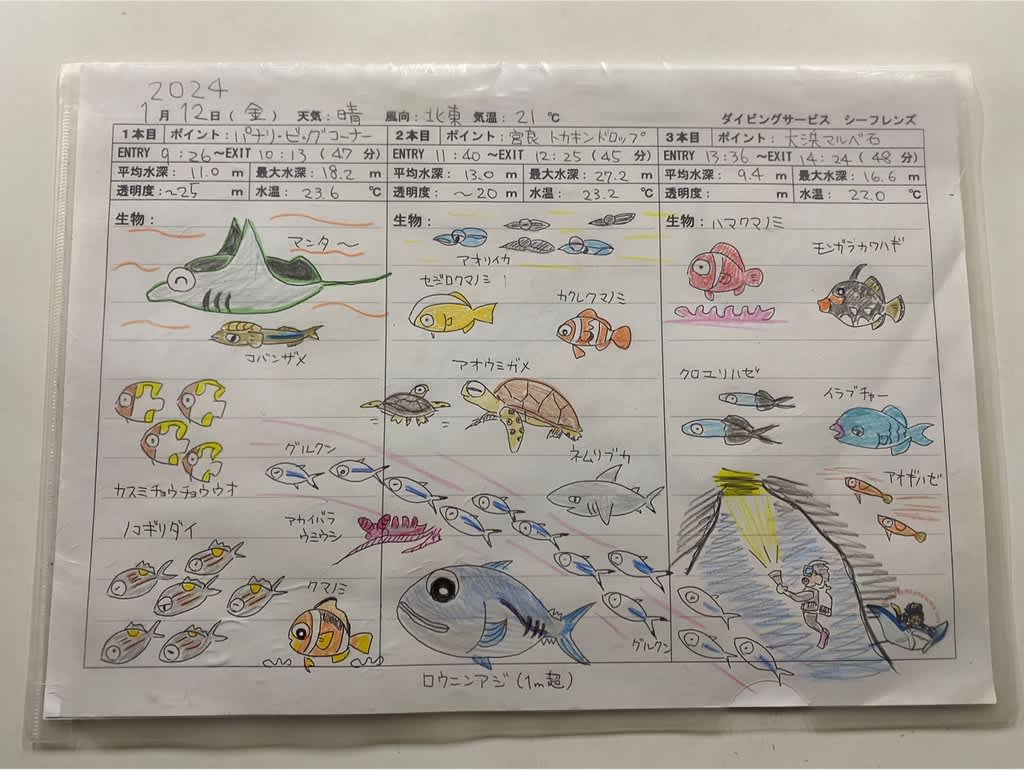 2024
1月12日(金) 天気:晴 風向:北東 気温:21℃ ダイビングサービス シーフレンズ
1本目 ポイント:パナリ・ビッグコーナー
ENTRY 9:26~EXIT 10:13(47分)
平均水深:11.0m 最大水深:18.2m
透明度:~25m 水温:23.6℃
生物:
マンタ~
コバンザメ
カスミチョウチョウウオ
グルクン
ノコギリダイ
アカイバラ
ウミウシ
クマノミ
2本目 ポイント:宮良 トカキンドロップ
ENTRY 11:40~EXIT 12:25(45分)
平均水深:13.0m 最大水深:27.2m
~20m 水温:23.2℃
生物:
アオリイカ
セジロクマノミ
カクレクマノミ
アオウミガメ
ネムリブカ
グルクン
ロウニンアジ(1m超)
3本目 ポイント:大浜マルベ石
ENTRY 13:36~EXIT 14:24(48分)
平均水深:9.4m 最大水深:16.6m
透明度: m 水温:22.0℃
生物:ハマクマノミ
モンガラカワハギ
クロユリハゼ
イラブチャー
アオギハゼ